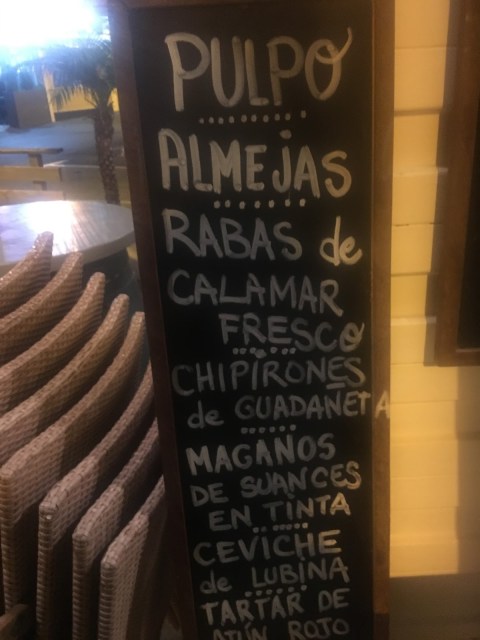 PULPO
ALMEJAS
RABAS de
CALAMAR
FRESCO
CHIPIRONES
de GUADAÑETA
MAGANOS
DE SUANCES
EN TINTA
CEVICHE
de LUBINA
TARTAR DE
ATÚN ROJO